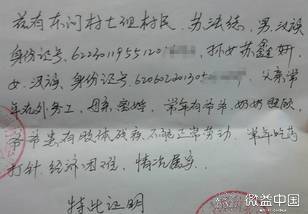 兹有东河村七组村民,苏法红,男,汉族
身份证号,6223011955120，孙女苏鑫妍
女,汉族,身份证号,62060220130，父亲常
年在外务工,母亲离婚,常年有爷爷、奶奶照顾
爷爷患有肢体残疾,不能正常劳动,常年吃药
打针,经济困难,情况属实.
特此证明
微益中国